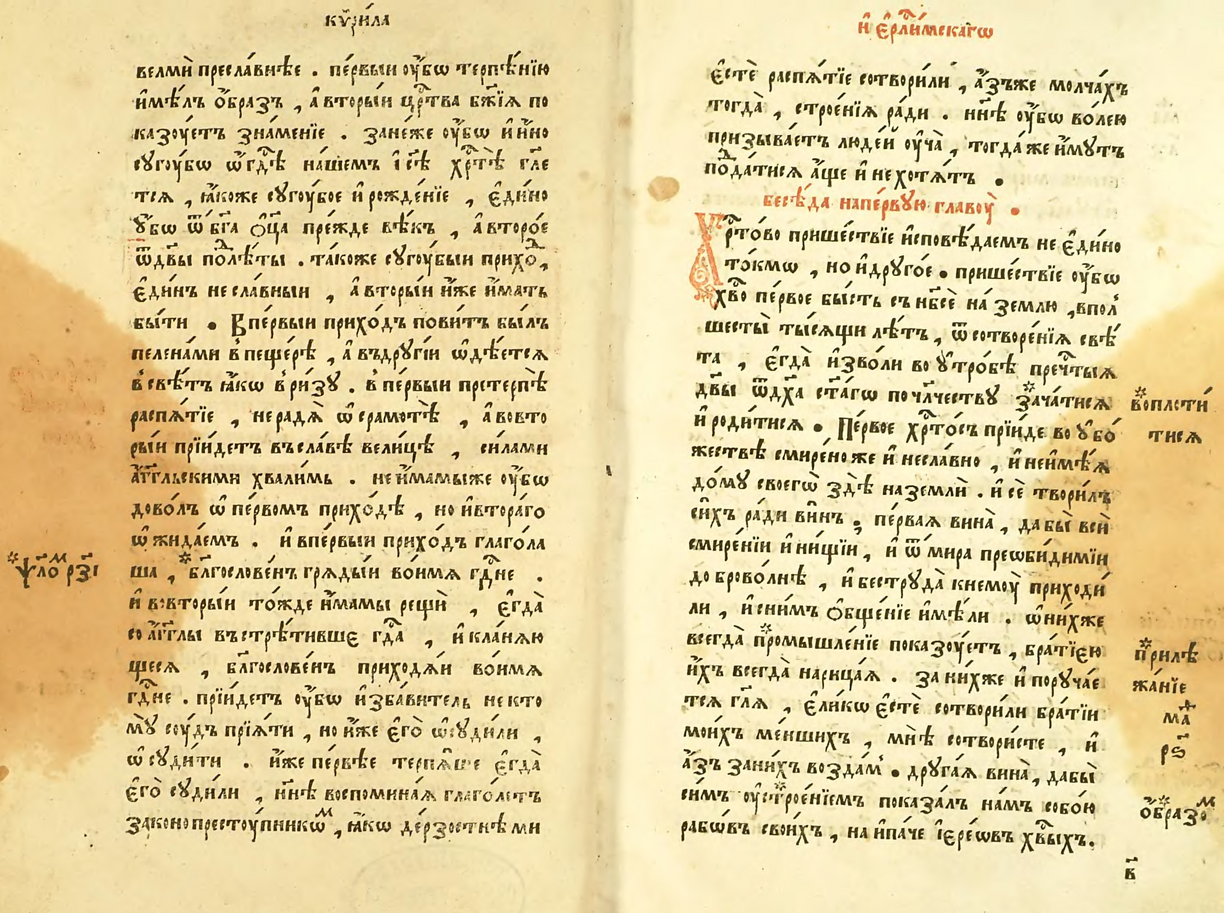 кѷри́ла
велмѝ пресла́внѣе . пе́рвыи ᲂу҆́бѡ терпѣ́нїю
и҆мѣ́лъ ѻ҆́бразъ , а҆ вторы́и црⷭ҇тва бж҃їѧ по
казꙋ́етъ зна́менїе . зане́же ᲂу҆́бѡ и҆ и҆́но
сꙋгꙋ́бѡ ѡ҆ гдⷭ҇ѣ нашемъ і҆ сѣ хрⷭ҇тѣ̀ гл҃е
тсѧ , ꙗ҆́коже сꙋгꙋ́бое и҆ рожде́нїе , є҆ди́но
ᲂу҆́бѡ ѿ бг҃а ѻ҆ц҃а пре́жде вѣ́къ , а҆ второ́е
ѿ дв҃ы полѣ́ты . та́коже сꙋгꙋ́быи прихоⷣ ,
є҆ди́нъ не сла́вныи , а҆ вторы́и и҆́же и҆́мать
бы́ти . В пе́рвыи прихо́дъ пови́тъ бы́лъ
пелена́ми в пеще́рѣ , а҆ въ дрꙋгі́и ѡ҆дѣ́етсѧ
в свѣ́тъ ꙗ҆́кѡ в ри́зꙋ . в пе́рвыи претерпѣ̀
распѧ́тїе , нерадѧ̀ ѡ҆ срамотѣ̀ , а҆ во вто
ры́и прїи́детъ въ сла́вѣ вели́цѣ , си́лами
а҆́гг҃льскими хвали́мь . не и҆́мамыже ᲂу҆́бѡ
дово́лъ ѡ҆ пе́рвомъ прихо́дѣ , но и҆ втора́го
ѡ҆жида́емъ . и҆ в пе́рвыи прихо́дъ глаго́ла
ша , * блг҃ослове́нъ грѧды́и во и҆́мѧ гдⷭ҇не .
* ѱало́ⷨ рз҃і
и҆ во вторы́и то́жде и҆́мамы рещѝ , є҆гда̀
со а҆́гг҃лы въстрѣ́тивше гдⷭ҇а , и҆ кла́нѧю
щесѧ , блг҃ослове́нъ приходѧ́и во и҆́мѧ
гдⷭ҇не . прїи́детъ ᲂу҆́бѡ и҆зба́витель не к то
мꙋ̀ сꙋ́дъ прїѧ́ти , но и҆́же є҆го̀ ѡ҆сꙋди́ли ,
ѡ҆сꙋди́ти . и҆́же пе́рвѣе терпѧ́ше є҆гда̀
є҆го̀ сꙋди́ли , нн҃ѣ воспомина́ѧ глаго́летъ
законопрестꙋ́пникѡⷨ , ꙗ҆́кѡ де́рзостнѣ ми
и҆ є҆рⷭ҇ли́мскагѡ
є҆стѐ распѧ́тїе сотвори́ли , а҆́зъже молча́хъ
тогда̀ , строе́нїѧ ра́ди . нн҃ѣ ᲂу҆́бѡ во́лею
призыва́етъ люде́й ᲂу҆ча̀ , тогда́ же и҆́мꙋтъ
под̾да́тисѧ а҆́ще и҆ не хотѧ́тъ .
бесѣ́да на пе́рвꙋю главꙋ̀ .
Хрⷭ҇то́во прише́ствїе и҆сповѣ́даемъ не є҆ди́но
то́кмѡ , но и҆ дрꙋго́е . прише́ствїе ᲂу҆́бѡ
хв҃о пе́рвое бы́сть с нб҃сѐ на́ землю , в пол̾
шесты̀ ты́сѧщи лѣ́тъ , ѿ сотворе́нїѧ свѣ́
та , є҆гда̀ и҆зво́ли во ᲂу҆тро́бѣ пречⷭ҇тыѧ
дв҃ы ѿ дх҃а ст҃а́гѡ по чл҃честву * зача́тисѧ
* воплоти́
тисѧ
и҆ роди́тисѧ . Пе́рвое хрⷭ҇то́съ прїи́де во ᲂу҆бо́
жествѣ смире́но же и҆ несла́вно , и҆ не и҆мѣ́ѧ
до́мꙋ своегѡ̀ здѣ̀ на землѝ . и҆ сѐ твори́лъ
си́хъ ра́ди ви́нъ , пе́рваѧ вина̀ , да бы̀ всѝ
смире́нїи и҆ ни́щїи , и҆ ѿ ми́ра преѡби́димїи
доброво́лнѣ , и҆ беструда̀ к немꙋ̀ приходи́
ли , и҆ с ни́мъ ѻ҆бще́нїе и҆мѣ́ли . ѡ҆ ни́хже
всегда̀ * промышле́нїе показꙋ́етъ , бра́тїею
* прилѣ
жа́нїе
и҆́хъ всегда̀ нарица́ѧ . за ни́хже и҆ порꙋча́е
тсѧ гл҃ѧ , є҆ли́кѡ є҆стѐ сотвори́ли бра́тїи
маⷴ҇
рѕ҃
мои́хъ ме́ншихъ , мнѣ̀ сотвори́сте , и҆
а҆́зъ за ни́хъ возда́мъ . дрꙋга́ѧ вина̀ , да бы̀
си́мъ * ᲂу҆строе́нїемъ показа́лъ на́мъ собо́ю
* ѻ҆́бразоⷨ
рабѡ́въ свои́хъ , на и҆па́че і҆ере́ѡвъ хв҃ыхъ.
в҃